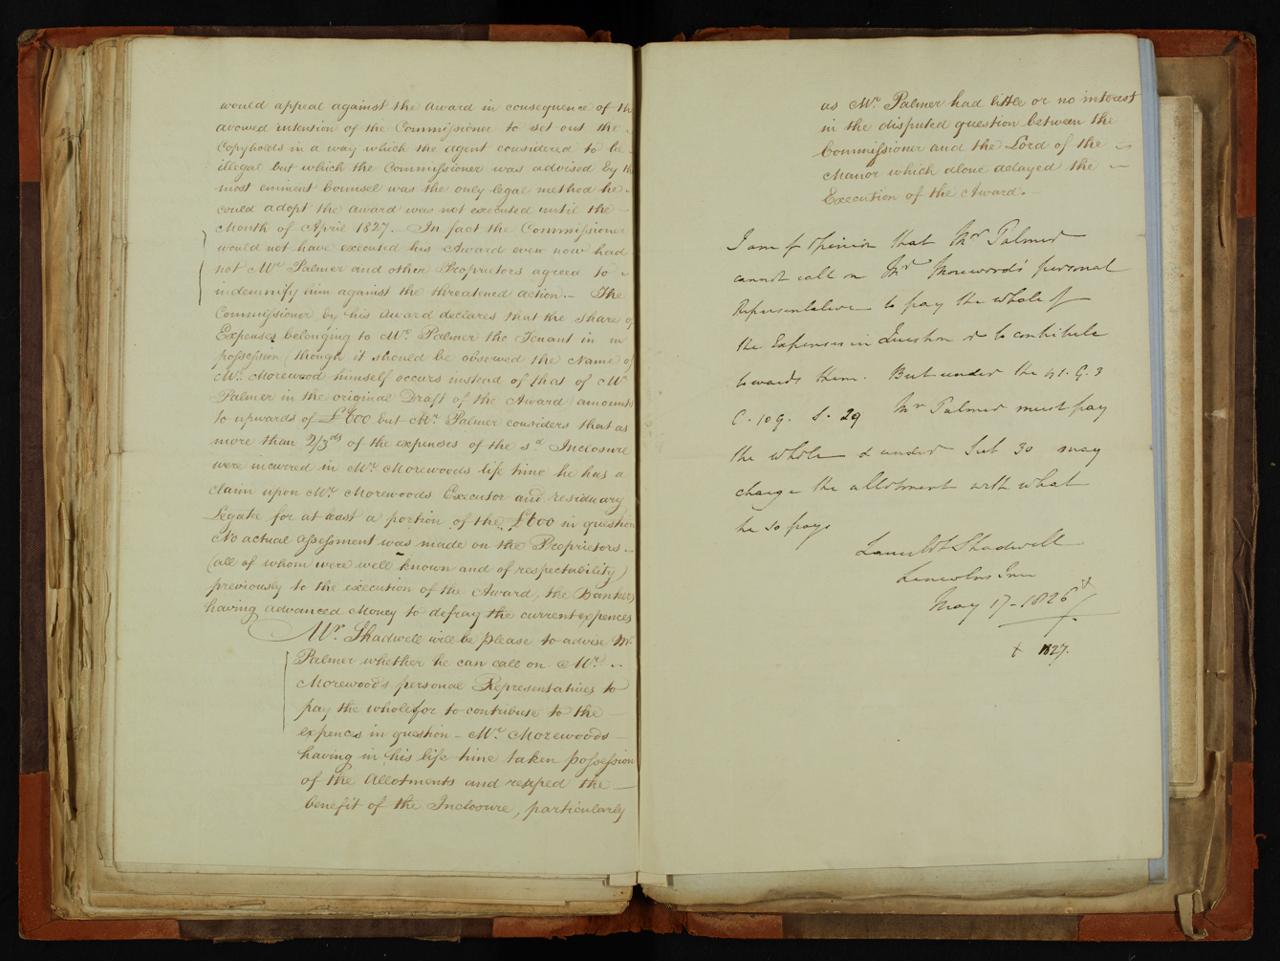 would appeal against the Award in consequence of the
avowed intention of the Commissioner to set out the
Copyholds in a way which the agent considered to be
illegal but which the Commissioner was advised by the
most eminent Counsel was the only legal method he
could adopt the Award was not executed until the
Month of April 1827. In fact the Commissioner
would not have executed his Award even now had
not Mr. Palmer and other Proprietors agreed to
indemnify him against the threatened action. The
Commissioner by his Award declares that the share of
Expenses belonging to Mr. Palmer the Tenant in
possession (though it should be observed the Name of
Mr. Morewood himself occurs instead of that of Mr
Palmer in the original Draft of the Award) amounts
to upwards of £600 but Mr. Palmer considers that as
more than 2/3ds of the expenses of the sd. Inclosure
were incurred in Mr. Morewoods life time he has a
claim upon Mr. Morewoods Executor and residuary
Legate for at least a portion of the £600 in question
No actual assessment was made on the Proprietors
(all of whom were well known and of respectability)
previously to the execution of the Award, the Bankers
having advanced Money to defray the current expences
Mr. Shadwell will be please to advise Mr.
Palmer whether he can call on Mr.
Morewoods personal Representatives to
pay the whole or to contribute to the
expences in question - Mr. Morewoods
having in his life time taken possession
of the Allotments and reaped the
benefit of the Inclosure, particularly
as Mr. Palmer had little or no interest
in the disputed question between the
Commissioner and the Lord of the
Manor which alone delayed the
Execution of the Award.
I am of Opinion that Mr. Palmer
cannot call on Mr. Morewood's personal
Representative to pay the whole of
the Expenses in Question or to contribute
towards them. But under the 41. G. 3
C. 109. S. 29 Mr Palmer must pay
the whole & under Sect 30 may
charge the allotment with what
he so pays
Lancelot Shadwell
Lincolns Inn
May 17 - 1826 +
+ 1827.